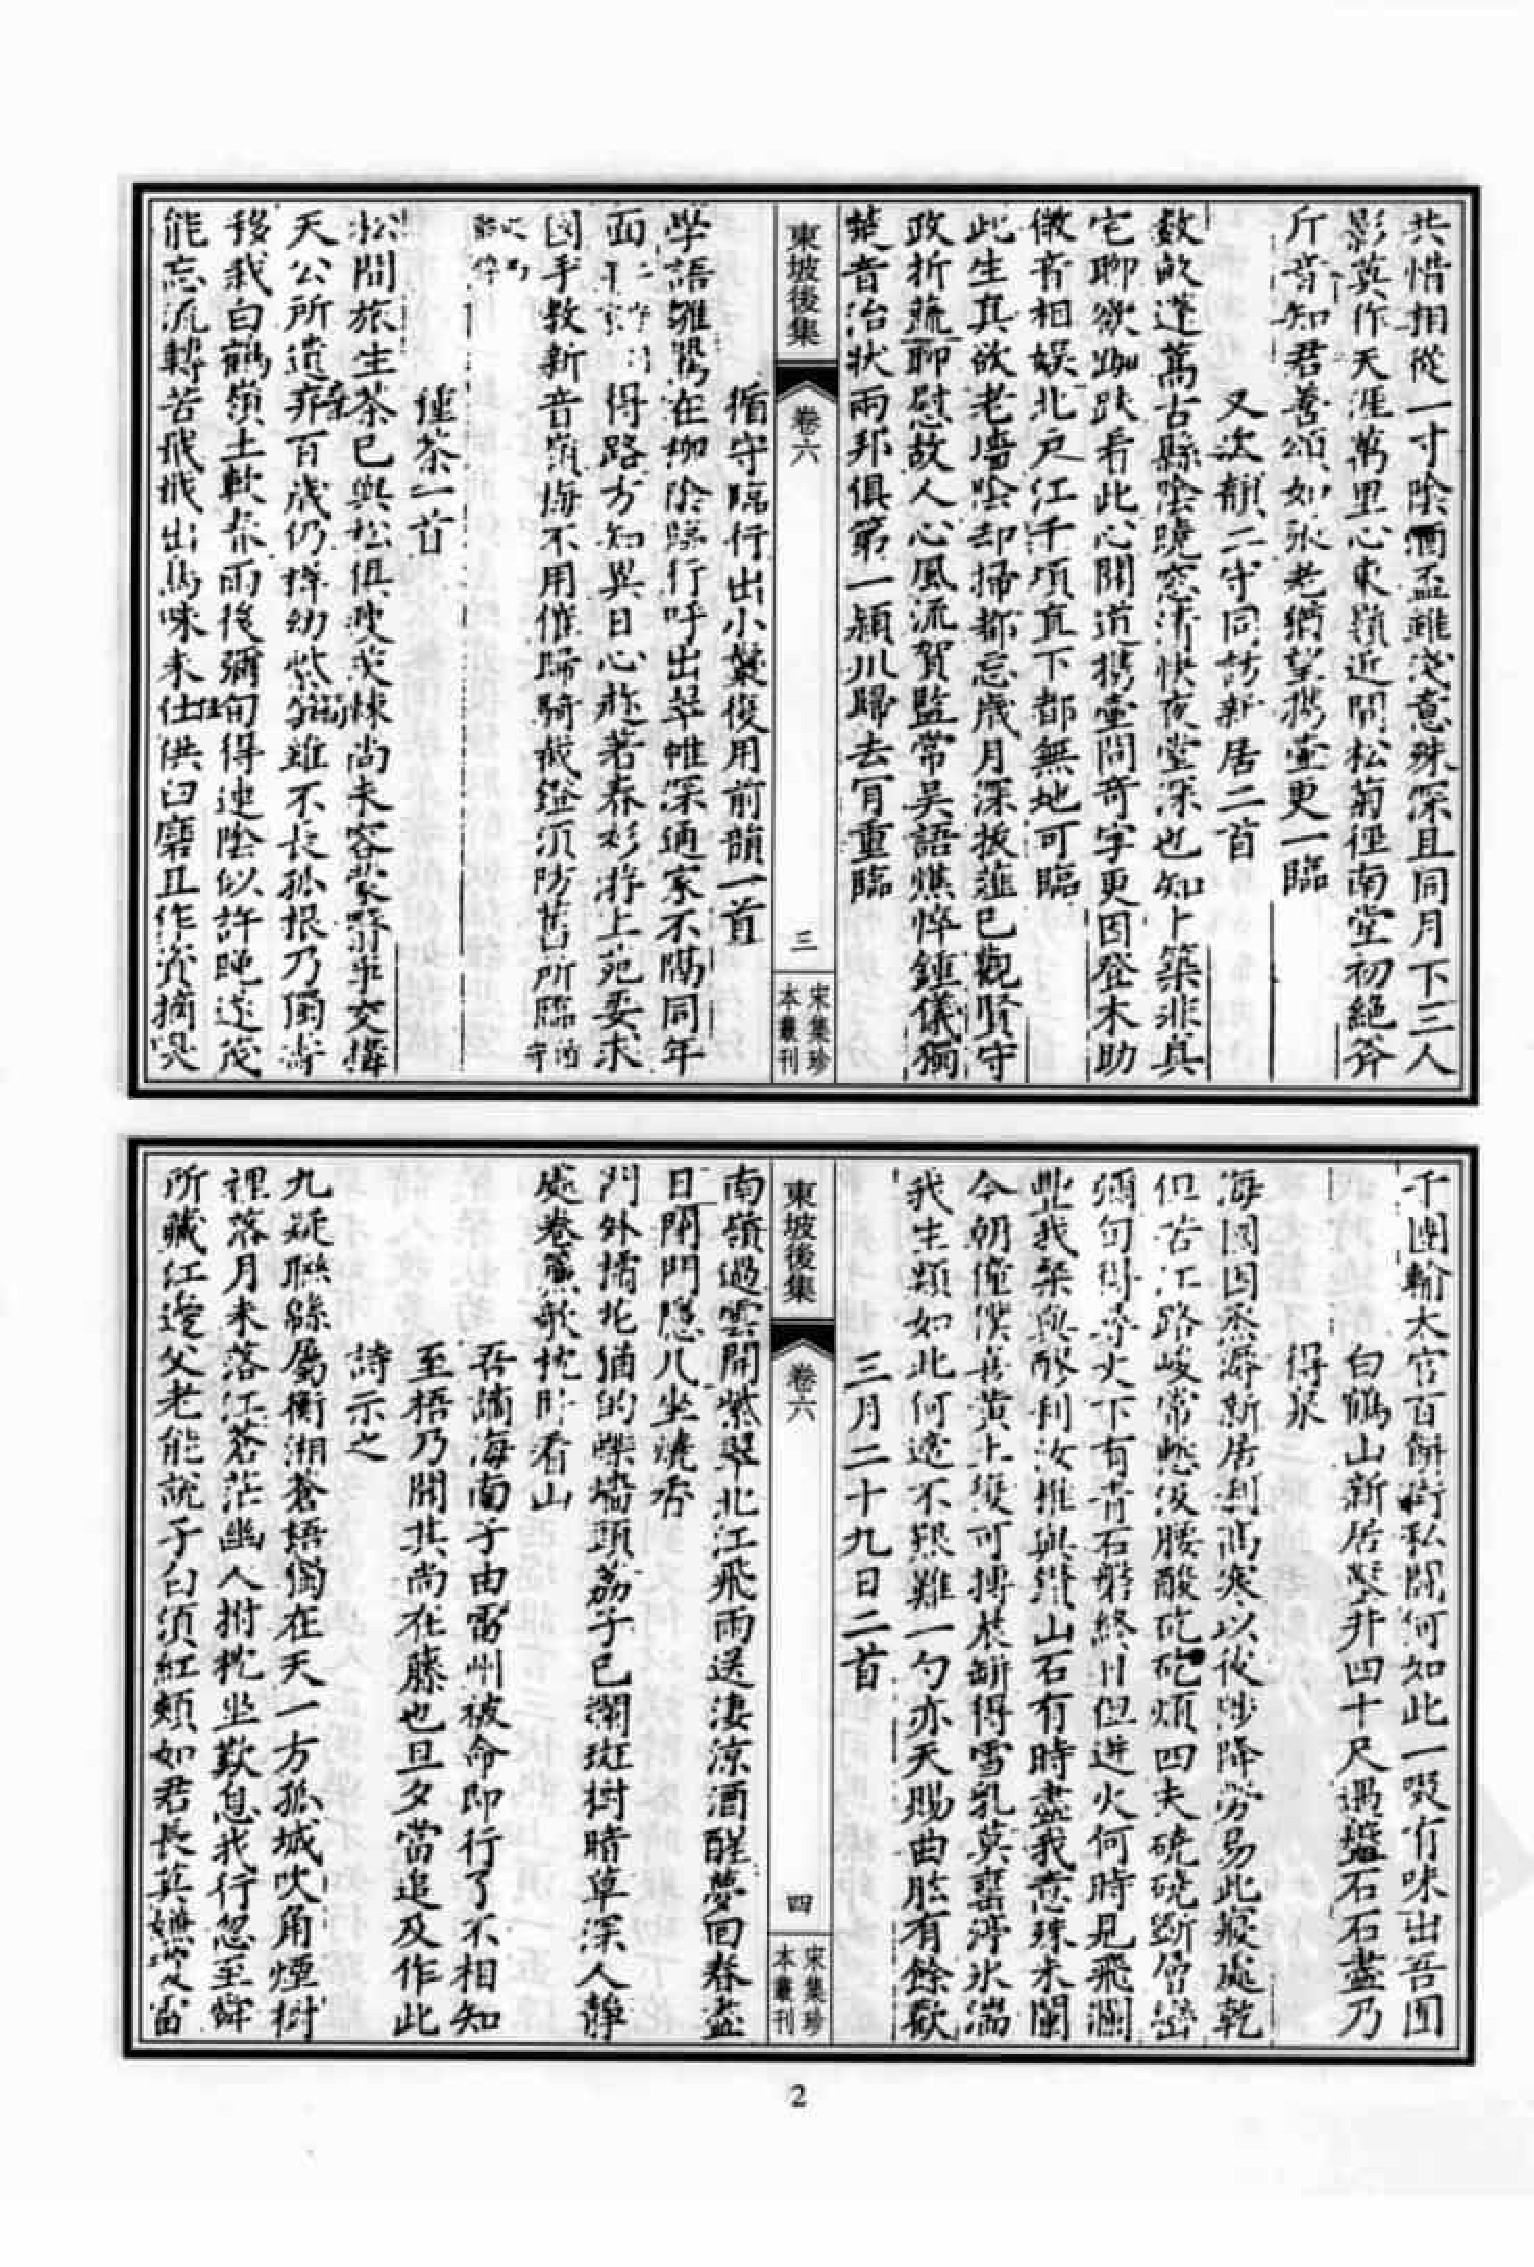 共惜相從一寸陰酒盃雖淺意殊深且同月下三人
影莫作天涯萬里心東嶺近開松菊徑南堂初絕斧
斤音知君善頌如張老猶望攜壺更一臨
又次韻二守同訪新居二首
數畝蓬蒿古縣陰曉窓清快夜堂深也知卜築非真
宅聊欲跏趺看此心聞道攜壺問奇字更因登木助
微音相娛北戶江千頃直下都無地可臨
此生真欲老墻陰却掃都忘歲月深拔薤已觀賢守
政折蔬聊慰故人心風流賀監常吳語憔悴鍾儀獨
楚音治狀兩邦俱第一潁川歸去肎重臨
東坡後集
卷六
三
宋集珍
本叢刊
循守臨行出小鬟復用前韻一首
學語雛鶯在柳陰臨行呼出翠帷深通家不隔同年
面 得路方知異日心趂著春衫游上苑要求
國手教新音嶺梅不用催歸騎截鐙須防舊所臨
種茶一首
松間旅生茶已與松俱瘦茨棘尚未容蒙翳爭交構
天公所遺棄百歲仍稚幼紫筍雖不長孤根乃獨壽
移栽白鶴嶺土軟春雨後彌旬得連陰似許晚遂茂
能忘流轉苦戢戢出鳥咮未任供臼磨且作資摘嗅
千團輸太官百餅衒私鬬何如此一啜有味出吾囿
白鶴山新居鑿井四十尺遇盤石石盡乃
得泉
海國困烝溽新居利高寒以彼陟降勞易此寢處乾
但苦江路峻常慙汲腰酸矻矻煩四夫硗硗斲層巒
彌旬得尋丈下有青石磐終日但迸火何時見飛瀾
豐我粲與醪利汝椎與鑽山石有時盡我意殊未闌
今朝僮僕喜黃土復可摶晨缾得雪乳莫甕渟冰湍
我生類如此何適不艱難一勺亦天賜曲肱有餘歡
三月二十九日二首
南嶺過雲開紫翠北江飛雨送淒涼酒醒夢回春盡
日閉門隱几坐燒香
門外橘花猶的皪墻頭荔子已斕斑樹暗草深人靜
處卷簾欹枕卧看山
東坡後集
卷六
四
宋集珍
本叢刊
吾謫海南子由雷州被命即行了不相知
至梧乃聞其尚在藤也旦夕當追及作此
詩示之
九疑聯綿屬衡湘蒼梧獨在天一方孤城吹角煙樹
裡落月未落江蒼茫幽人拊枕坐歎息我行忽至舜
所藏江邊父老能說子白須紅頰如君長莫嫌